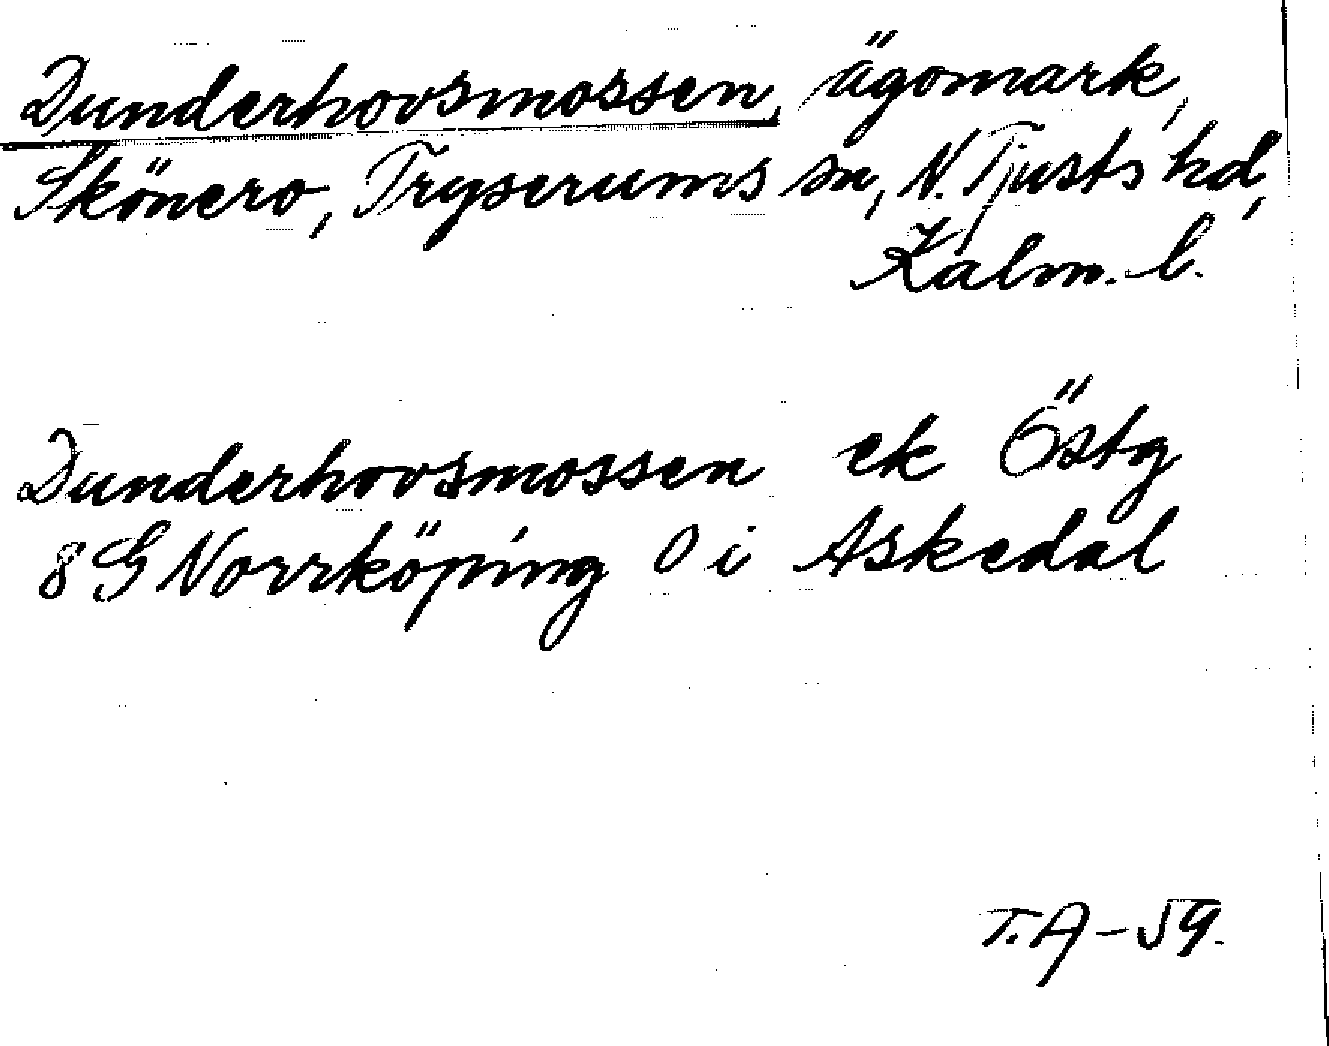 Dunderhovsmossen, ägomark,
Skönero, Tryserums sn, N. Tjusts hd,
Kalm. l.
Dunderhovsmossen ek Östg
8 G Norrköping O i Askedal
T. A - 59.